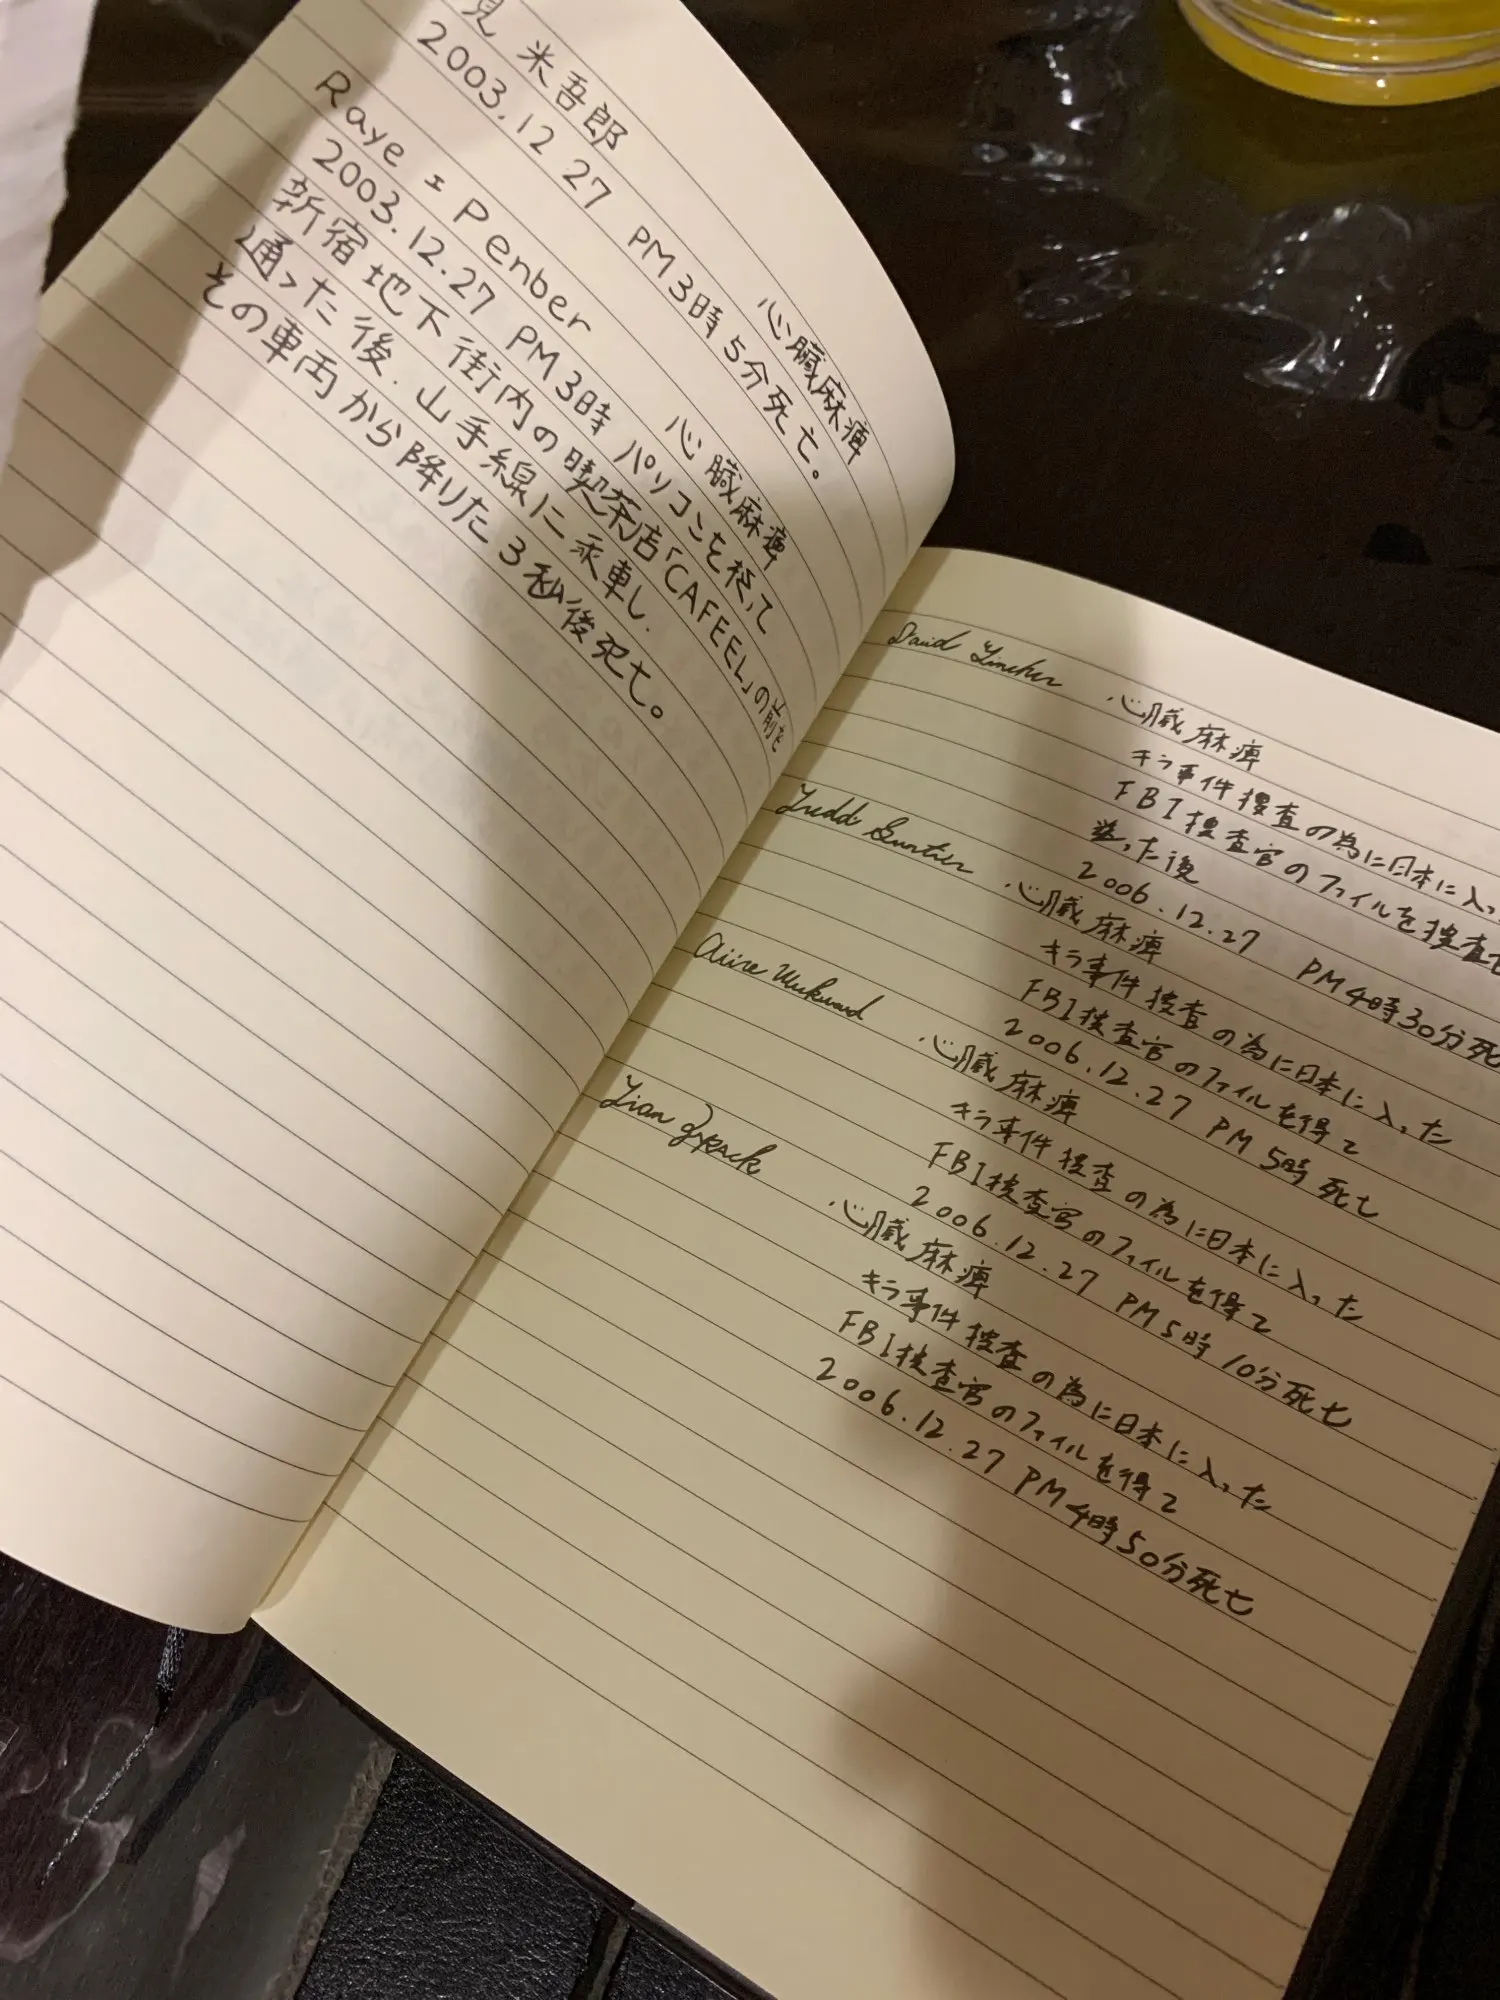 見 米吾郎
心臓麻痺
2003.12 27 PM3時5分死亡。
Raye エ Penber
心臓麻痺
2003.12.27 PM3時 パソコンを使って
新宿地下街内の喫茶店「CAFEEL」の前を
通った後.山手線に乗車し.
その車両から降りた3秒後死亡。
David
心臓麻痺
キラ事件捜査の為に日本に入っ
FBI捜査官のファイルを捜査
送った後
2006.12.27 PM4時30分死
心臓麻痺
キラ事件捜査の為に日本に入った
FBI捜査官のファイルを得て
2006.12.27 PM5時死亡
心臓麻痺
キラ事件捜査の為に日本に入った
FBI捜査官のファイルを得て
2006.12.27 PM5時10分死亡
Lian
心臓麻痺
キラ事件捜査の為に日本に入った
FBI捜査官のファイルを得て
2006.12.27 PM4時50分死亡